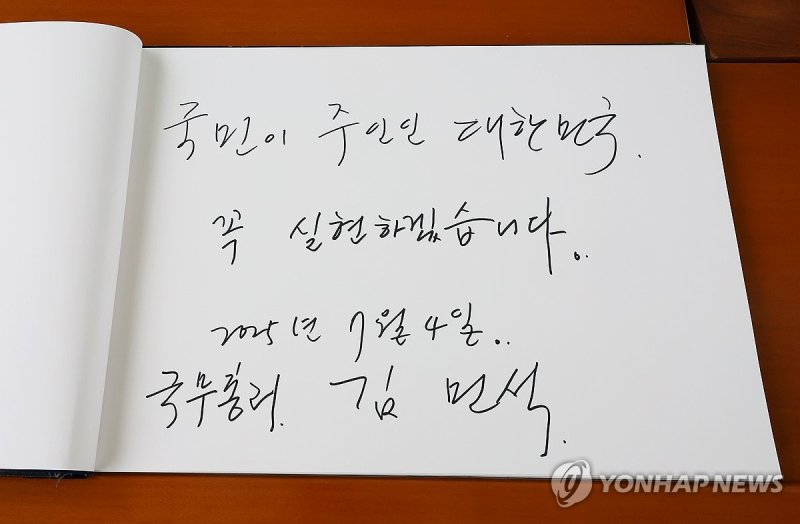 국민이 주인인 대한민국.
꼭 실현하겠습니다.
2025년 7월 4일..
국무총리. 김 민석.
YONHAP NEWS